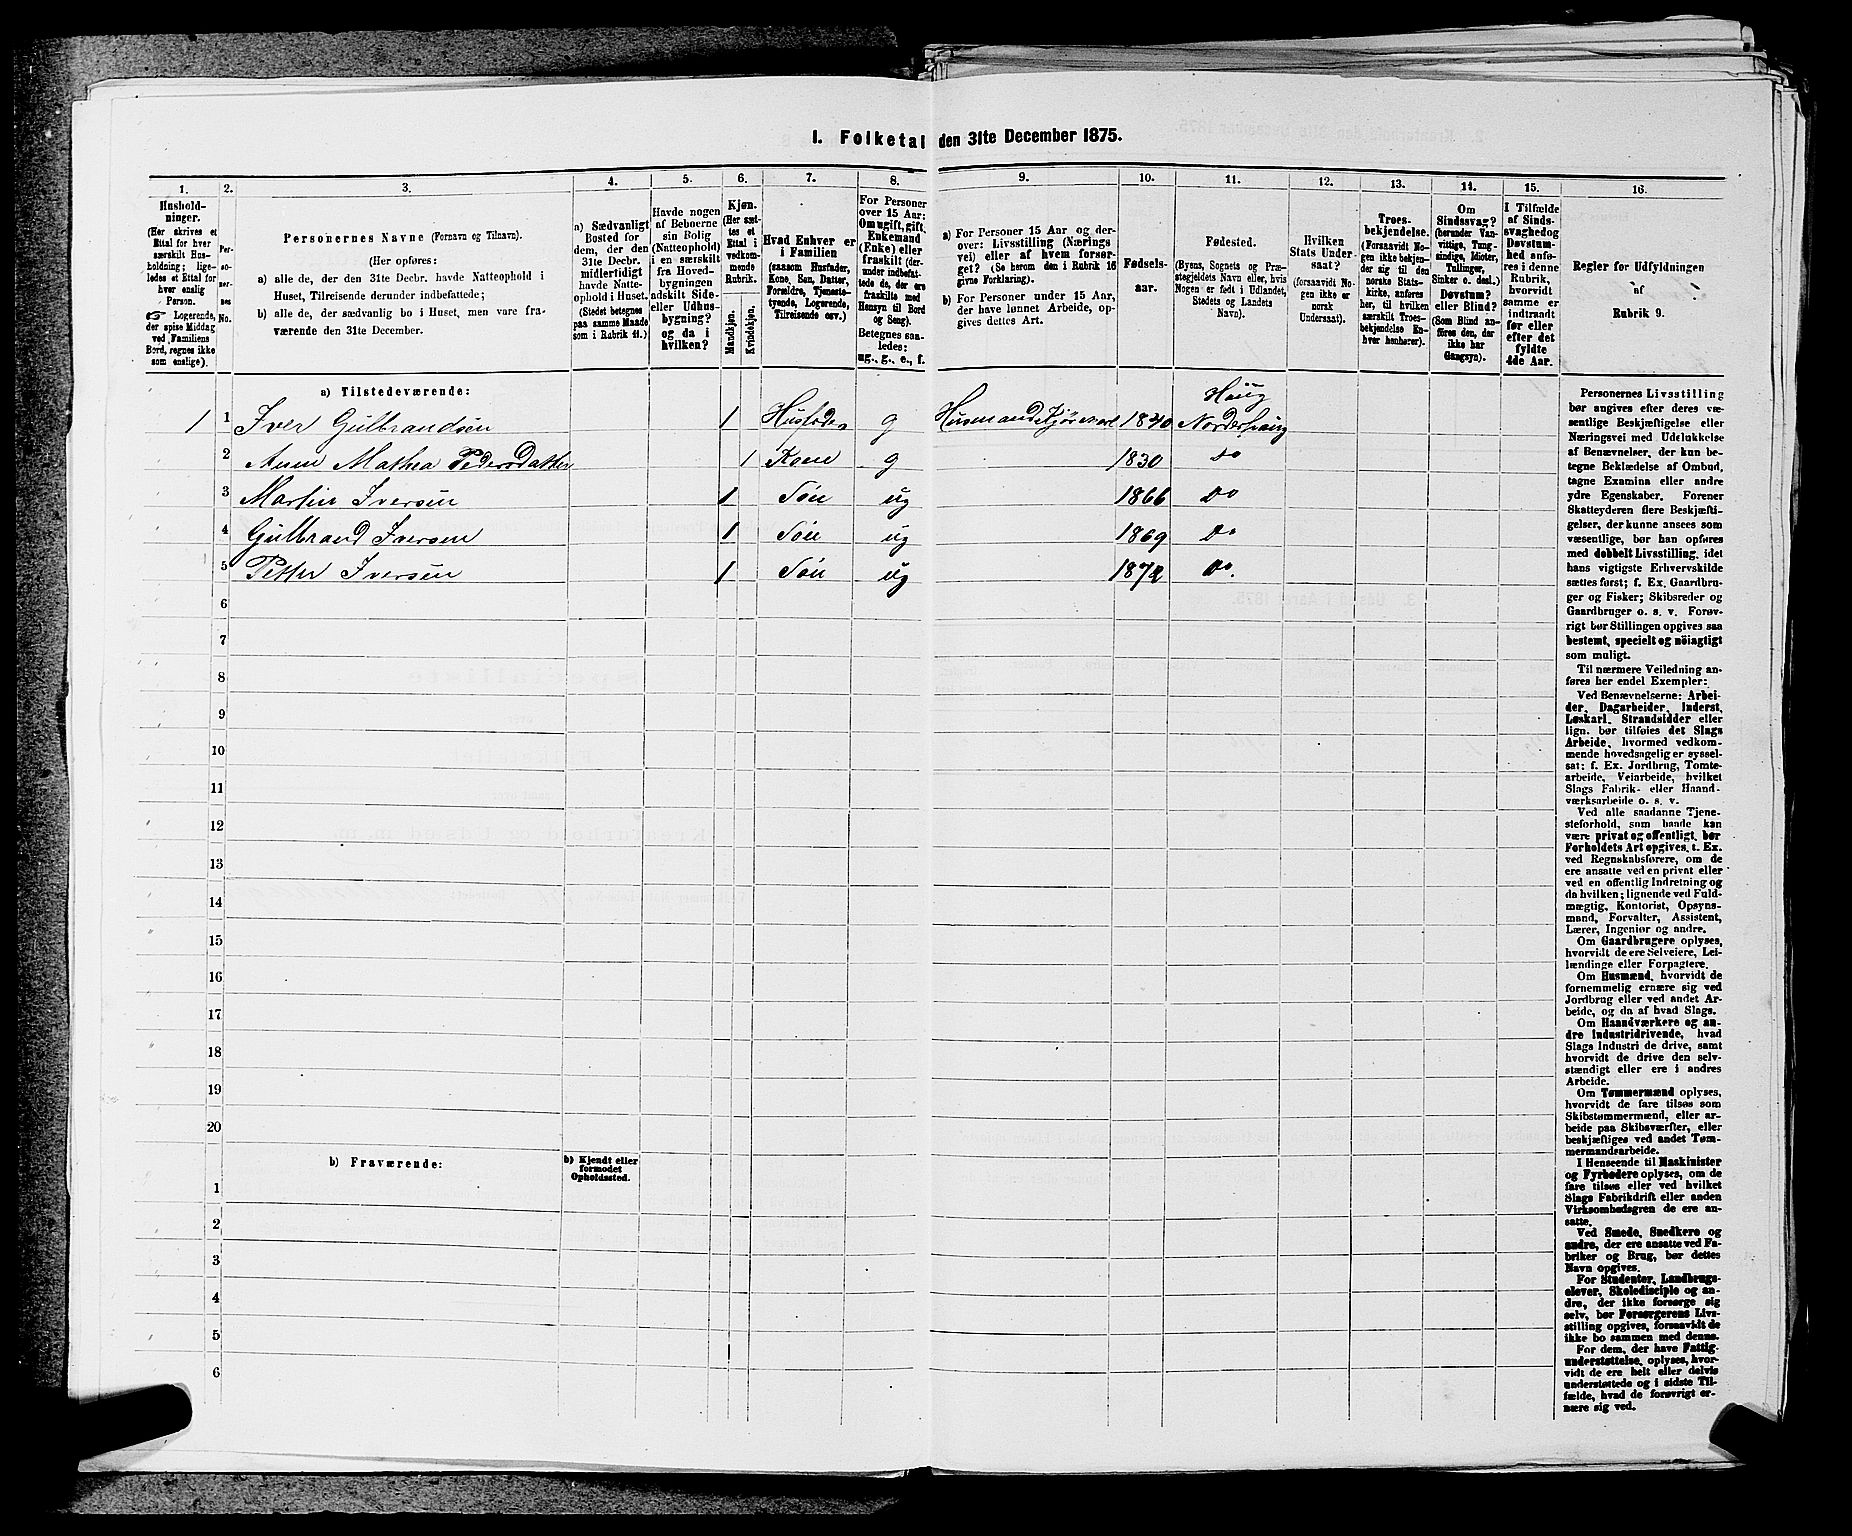 I. Folketal den 31te December 1875.
1. 2. 3. 4. 5. 6. 7. 8. 9. 10. 11. 12. 13. 14. 15. 16.
Hushold-
ninger.
(Her skrives et
Ettal for hver
særskilt Hus-
holdning; lige-
ledes et Ettal for
hver enslig
Person.
☞ Logerende,
der spise Middag
ved Familiens
Bord, regnes ikke
som enslige).
Per-
so-
ner-
nes
No.
Personernes Navne (Fornavn og Tilnavn).
(Her opføres:
a) alle de, der den 31te Decbr. havde Natteophold i
Huset, Tilreisende derunder indbefattede;
b) alle de, der sædvanlig bo i Huset, men vare fra-
værende den 31te December.
a) Sædvanligt
Bosted for
dem, der den
31te Decbr.
midlertidigt
havde Natte-
ophold i Huset.
(Stedet betegnes
paa samme Maade
som i Rubrik 11.)
Havde nogen
af Beboerne
sin Bolig
(Natteophold)
i en særskilt
fra Hoved-
bygningen
adskilt Side-
eller Udhus-
bygning?
og da i
hvilken?
Kjøn.
(Her sæt-
tes et
Ettal i
vedkom-
mende
Rubrik.
Mandkjøn.
Kvindekjøn.
Hvad Enhver er
i Familien
(saasom Husfader,
Kone, Søn, Datter,
Forældre, Tjeneste-
tyende, Logerende,
Tilreisende osv.)
For Personer
over 15 Aar:
Om ugift, gift,
Enkemand
(Enke) eller
fraskilt (der-
under indbefat-
tede de, der ere
fraskilte med
Hensyn til Bord
og Seng).
Betegnes saa-
ledes:
ug., g., e., f.
a) For Personer 15 Aar og der-
over: Livsstilling (Nærings
vei) eller af hvem forsør-
get? (Se herom den i Rubrik 16
givne Forklaring).
b) For Personer under 15 Aar,
der have lønnet Arbeide, op-
gives dettes Art.
Fødsels-
aar.
Fødested.
(Byens, Sognets og Præ-
stegjeldets Navn eller, hvis
Nogen er født i Udlandet,
Stedets og Landets
Navn).
Hvilken
Stats Under-
saat?
(forsaavidt No-
gen ikke er
norsk
Undersaat).
Troes-
bekjendelse.
(Forsaavidt No-
gen ikke bekjen-
der sig til den
norske Stats-
kirke, anføres
her, til hvilken
særskilt Troes-
bekjendelse En-
hver henhører).
Om
Sindssvag?
(herunder Van-
vittige, Tung-
sindige, Idioter,
Tullinger,
Sinker o. desl.)
Døvstum?
eller Blind?
(Som Blind an-
føres den, der
ikke har
Gangsyn).
I Tilfælde
af Sinds-
svaghed og
Døvstum-
hed anfø-
res i denne
Rubrik,
hvorvidt
samme er
indtraadt
før eller
efter det
fyldte
4de Aar.
Regler for Udfyldningen
af
Rubrik 9.
a) Tilstedeværende:
Haug
1 1 Iver Gulbrandsen 1 Husfader g 1840 Norderhoug
2 Anne Mathea Pedersdatter 1 Kone g 1830 do
3 Martin Iversen 1 Søn ug 1866 Do
4 Gulbrand Iversen 1 Søn ug 1869 Do
5 Petter Iversen 1 Søn ug 1872 Do.
6
7
8
9
10
11
12
13
14
15
16
17
18
19
20
b) Fraværende:
b) Kjendt eller
formodet
Opholdssted.
1
2
3
4
5
6
Personernes Livsstilling
bør angives efter deres væ-
sentlige Beskjæftigelse eller
Næringsvei med Udelukkelse
af Benævnelser, der kun be-
tegne Beklædelse af Ombud,
tagne Examina eller andre
ydre Egenskaber. Forener
Skatteyderen flere Beskjæfti-
gelser, der kunne ansees som
væsentlige, bør han opføres
med dobbelt Livsstilling, idet
hans vigtigste Erhvervskilde
sættes først; f. Ex. Gaardbru-
ger og Fisker; Skibsreder og
Gaardbruger o. s. v. Forøv-
rigt bør Stillingen opgives saa
bestemt, specielt og nöiagtigt
som muligt.
Til nærmere Veiledning an-
føres her endel Exempler:
Ved Benævnelserne: Arbei-
der, Dagarbeider, Inderst,
Løskarl, Strandsidder eller
lign. bør tilføies det Slags
Arbeide, hvormed vedkom-
mende hovedsagelig er syssel-
sat: f. Ex. Jordbrug, Tomte-
arbeide, Veiarbeide, hvilket
Slags Fabrik- eller Haand-
værksarbeide o. s. v.
Ved alle saadanne Tjene-
steforhold, som baade kan
være privat og offentligt, bør
Forholdets Art opgives, f. Ex.
ved Regnskabsførere, om de
ere ansatte ved en privat eller
ved en offentlig Indretning og
da hvilken; lignende ved Fuld-
mægtig, Kontorist, Opsyns-
mand, Forvalter, Assistent,
Lærer, Ingeniør og andre.
Om Gaardbrugere oplyses,
hvorvidt de ere Selveiere, Lei-
lændinge eller Forpagtere.
Om Husmænd, hvorvidt de
fornemmelig ernære sig ved
Jordbrug eller ved andet Ar-
beide, og da af hvad Slags.
Om Haandværkere og an-
dre Industridrivende, hvad
Slags Industri de drive, samt
hvorvidt de drive den selv-
stændigt eller ere i andres
Arbeide.
Om Tømmermænd oplyses,
hvorvidt de fare tilsøs som
Skibstømmermænd, eller ar-
beide paa Skibsværfter, eller
beskjæftiges ved andet Tøm-
mermandsarbeide.
I Henseende til Maskinister
og Fyrbødere oplyses, om de
fare tilsøs eller ved hvilket
Slags Fabrikdrift eller anden
Virksomhedsgren de ere an-
satte.
Ved Smede, Snedkere og
andre, der ere ansatte ved Fa-
briker og Brug, bør dettes
Navn opgives.
For Studenter, Landbrugs-
elever, Skoledisciple og an-
dre, der ikke forsørge sig
selv, bør Forsørgerens Livs-
stilling opgives, forsaavidt de
ikke bo sammen med denne.
For dem, der have Fattig-
understøttelse, oplyses, hvor-
vidt de ere helt eller delvis
understøttede og i sidste Til-
fælde, hvad de forøvrigt er-
nære sig ved.